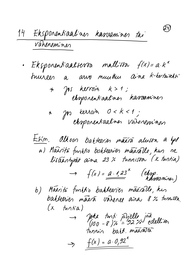 24
14 Eksponentiaalinen kasvaminen tai
väheneminen
• Eksponentiaalisessa mallissa f(x) = a·kˣ
suureen a arvo muuttuu aina k-kertaiseksi
• jos kerroin k > 1 ;
eksponentiaalinen kasvaminen
• jos kerroin 0 < k < 1 ;
eksponentiaalinen väheneminen
Esim. Olkoon bakteerien määrä alussa a kpl
a) Määritä funktio bakteerien määrälle, kun ne
lisääntyvät aina 23 % tunnissa (x tuntia)
→ f(x) = a·1,23ˣ (eksp. kasvaminen)
b) Määritä funktio bakteerien määrälle, kun
bakteerien määrä vähenee aina 8 % tunnissa
(x tuntia)
→ Joka tunti jäljelle jää
(100 - 8) % = 92 % edellisen
tunnin bakt. määrästä
→ f(x) = a·0,92ˣ